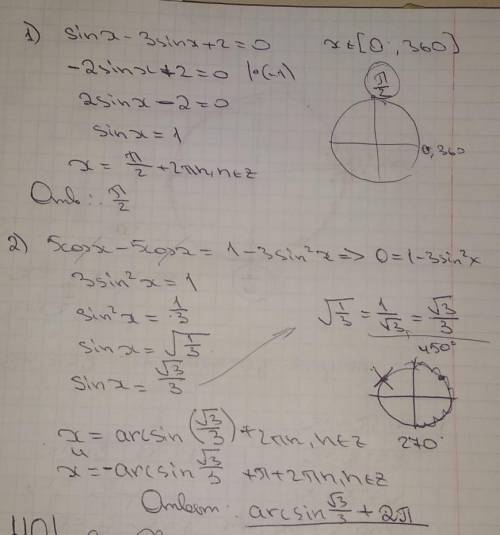 1) sinx - 3sinx + 2 = 0 x ∈ [0; 360]
-2sinx + 2 = 0 |·(-1)
π/2
2sinx - 2 = 0
sinx = 1
0, 360
x = π/2 + 2πn, n∈z
Ответ: π/2
2) 5cosx - 5cosx = 1 - 3sin²x => 0 = 1 - 3sin²x
3sin²x = 1
sin²x = 1/3
√(1/3) = 1/√3 = √3/3
sinx = √(1/3)
450°
sinx = √3/3
270°
x = arcsin(√3/3) + 2πn, n∈z
и
x = -arcsin √3/3 + π + 2πn, n∈z
Ответ: arcsin √3/3 + 2π